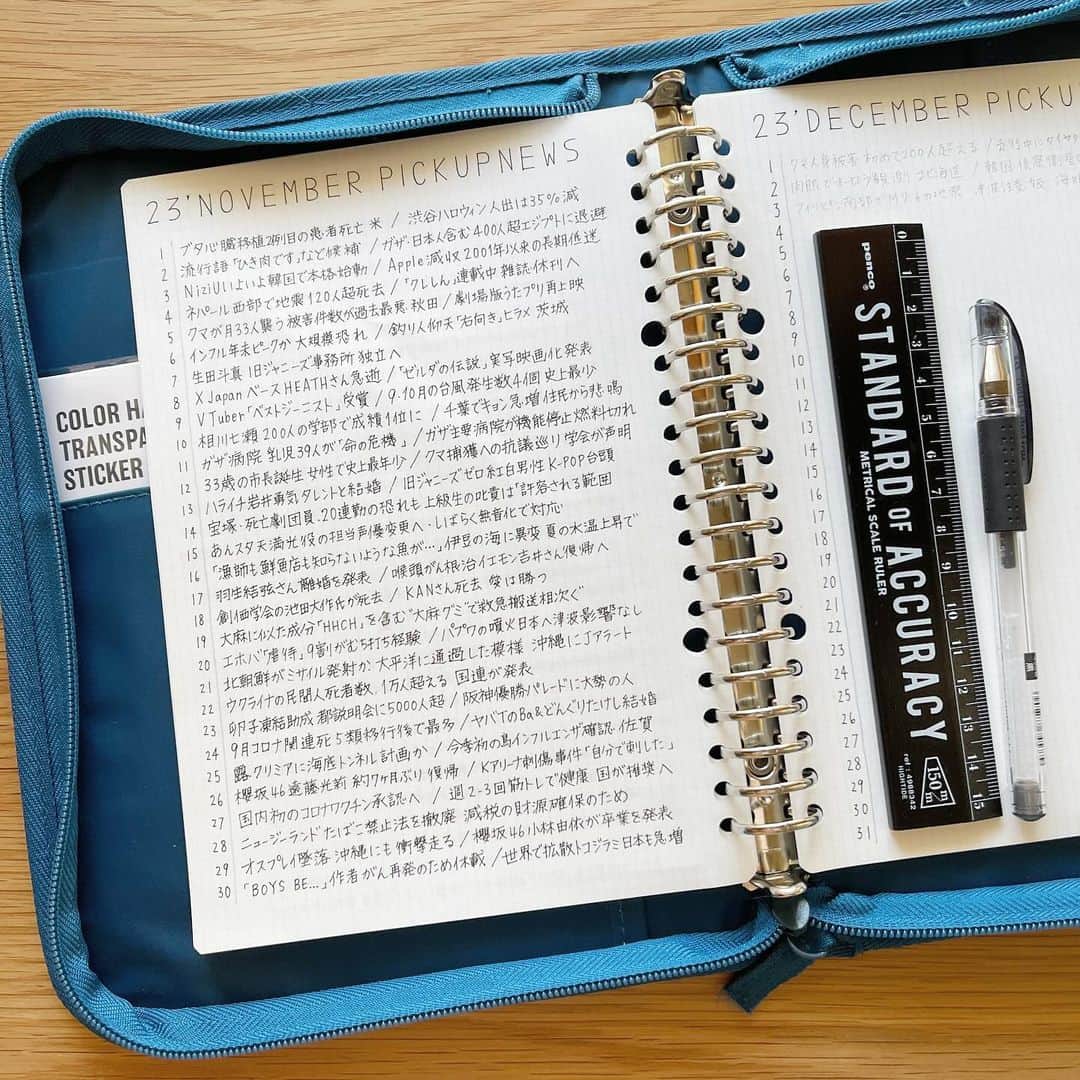 23'NOVEMBER PICKUPNEWS
1 ブタ心臓移植2例目の患者死亡 米 / 渋谷ハロウィン人出は35%減
2 流行語「ひき肉です」など候補 / ガザ・日本人含む400人超エジプトに退避
3 NiziUいよいよ韓国で本格始動 / Apple減収2001年以来の長期低迷
4 ネパール西部で地震120人超死去 / 「クレしん」連載中雑誌休刊へ
5 クマが月33人襲う被害件数が過去最悪 秋田 / 劇場版うたプリ再上映
6 インフル年末ピークか 大規模恐れ / 釣り人仰天「右向き」ヒラメ 茨城
7 生田斗真 旧ジャニーズ事務所独立へ
8 X JapanベースHEATHさん急逝 / 「ゼルダの伝説」実写映画化発表
9 VTuber「ベストジーニスト」受賞 / 9.10月の台風発生数4個 史上最少
10 相川七瀬 200人の学部で成績1位に / 千葉でキョン急増 住民から悲鳴
11 ガザ病院 乳児39人が「命の危機」 / ガザ主要病院が機能停止 燃料切れ
12 33歳の市長誕生 女性で史上最年少 / クマ捕獲への抗議巡り学会が声明
13 ハライチ岩井勇気タレントと結婚 / 旧ジャニーズゼロ紅白男性K-POP台頭
14 宝塚・死亡劇団員.20連勤の恐れも 上級生の叱責は「許容される範囲
15 あんスタ天満光役の担当声優変更へ・しばらく無音化で対応
16 「漁師も鮮魚店も知らないような魚が…」伊豆の海に異変 夏の水温上昇で
17 羽生結弦さん 離婚を発表 / 喉頭がん根治イエモン吉井さん復帰へ
18 創価学会の池田大作氏が死去 / KANさん死去 愛は勝つ
19 大麻に似た成分「HHCH」を含む"大麻グミ"で救急搬送相次ぐ
20 エホバ「虐待」9割がむち打ち経験 / パプアの噴火日本へ津波影響なし
21 北朝鮮がミサイル発射か 太平洋に通過した模様 沖縄にJアラート
22 ウクライナの民間人死者数.1万人超える 国連が発表
23 卵子凍結助成 都説明会に5000人超 / 阪神優勝パレードに大勢の人
24 9月コロナ関連死 5類移行後で最多 / ヤバTのBa&どんぐりたけし結婚
25 露.クリミアに海底トンネル計画か / 今季初の鳥インフルエンザ確認 佐賀
26 櫻坂46遠藤光莉 約7ヶ月ぶり復帰 / Kアリーナ刺傷事件「自分で刺した」
27 国内初のコロナワクチン承認へ / 週2-3回筋トレで健康 国が推奨へ
28 ニュージーランドたばこ禁止法を撤廃 減税の財源確保のため
29 オスプレイ墜落 沖縄にも衝撃走る / 櫻坂46小林由依が卒業を発表
30 「BOYS BE…」作者がん再発のため休載 / 世界で拡散トコジラミ日本も急増
COLOR HA
TRANSPA
STICKER
23'DECEMBER PICKU
1 クマ人身被害 初めて200人超える /
2 肉眼でオーロラ観測 北海道 /
3
4
5
6
7
8
9
10
11
12
13
14
15
16
17
18
19
20
21
22
23
24
25
26
27
28
29
30
31
penco
STANDARD OF ACCURACY
METRICAL SCALE RULER
0 1 2 3 4 5 6 7 8 9 10 11 12 13 14 15
150m/m
ref: 4988342
HIGHTIDE